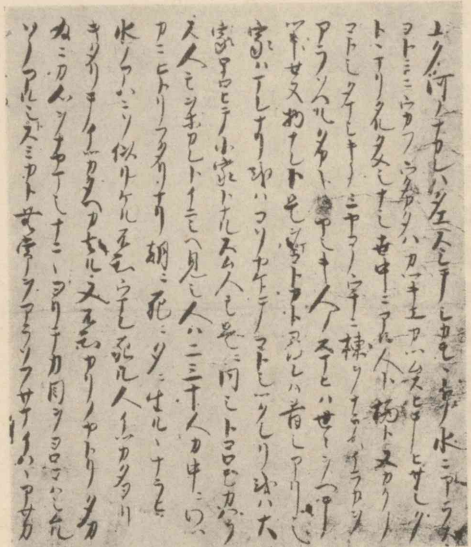 ユク河ノナカレハタエスシテシカモヽトノ水ニアラス
ヨトミニウカフウタカタハカツキエカツムスヒテヒサシク
トヽマリタルタメシナシ世中ニアル人ト栖ト又カクノコ
トシタマシキノミヤコノウチニ棟ヲナラヘイラカヲ
アラソヘルタカキイヤシキ人ノスマヒハ世々ヲヘテツキ
セヌ物ナレト是ヲマコトカト尋レハ昔シアリシ
家ハマレナリ或ハコソヤケテコトシツクレリ或ハ大
家ホロヒテ小家トナルスム人モ是ニ同シトコロモカハラ
ス人モヲホカレトイニシヘ見シ人ハ二三十人カ中ニワツ
カニヒトリフタリナリ朝ニ死ニ夕ニ生ルヽナラヒ
水ノアハニソ似リケル不知ウマレ死ル人イツカタヨリ
キタリテイツカタヘカ去ル又不知カリノヤトリタカ
為ニカ心ヲナヤマシナニヽヨリテカ目ヲヨロコハシムル
ソノアルシトスミカト無常ヲアラソフサマイハヽアサカ